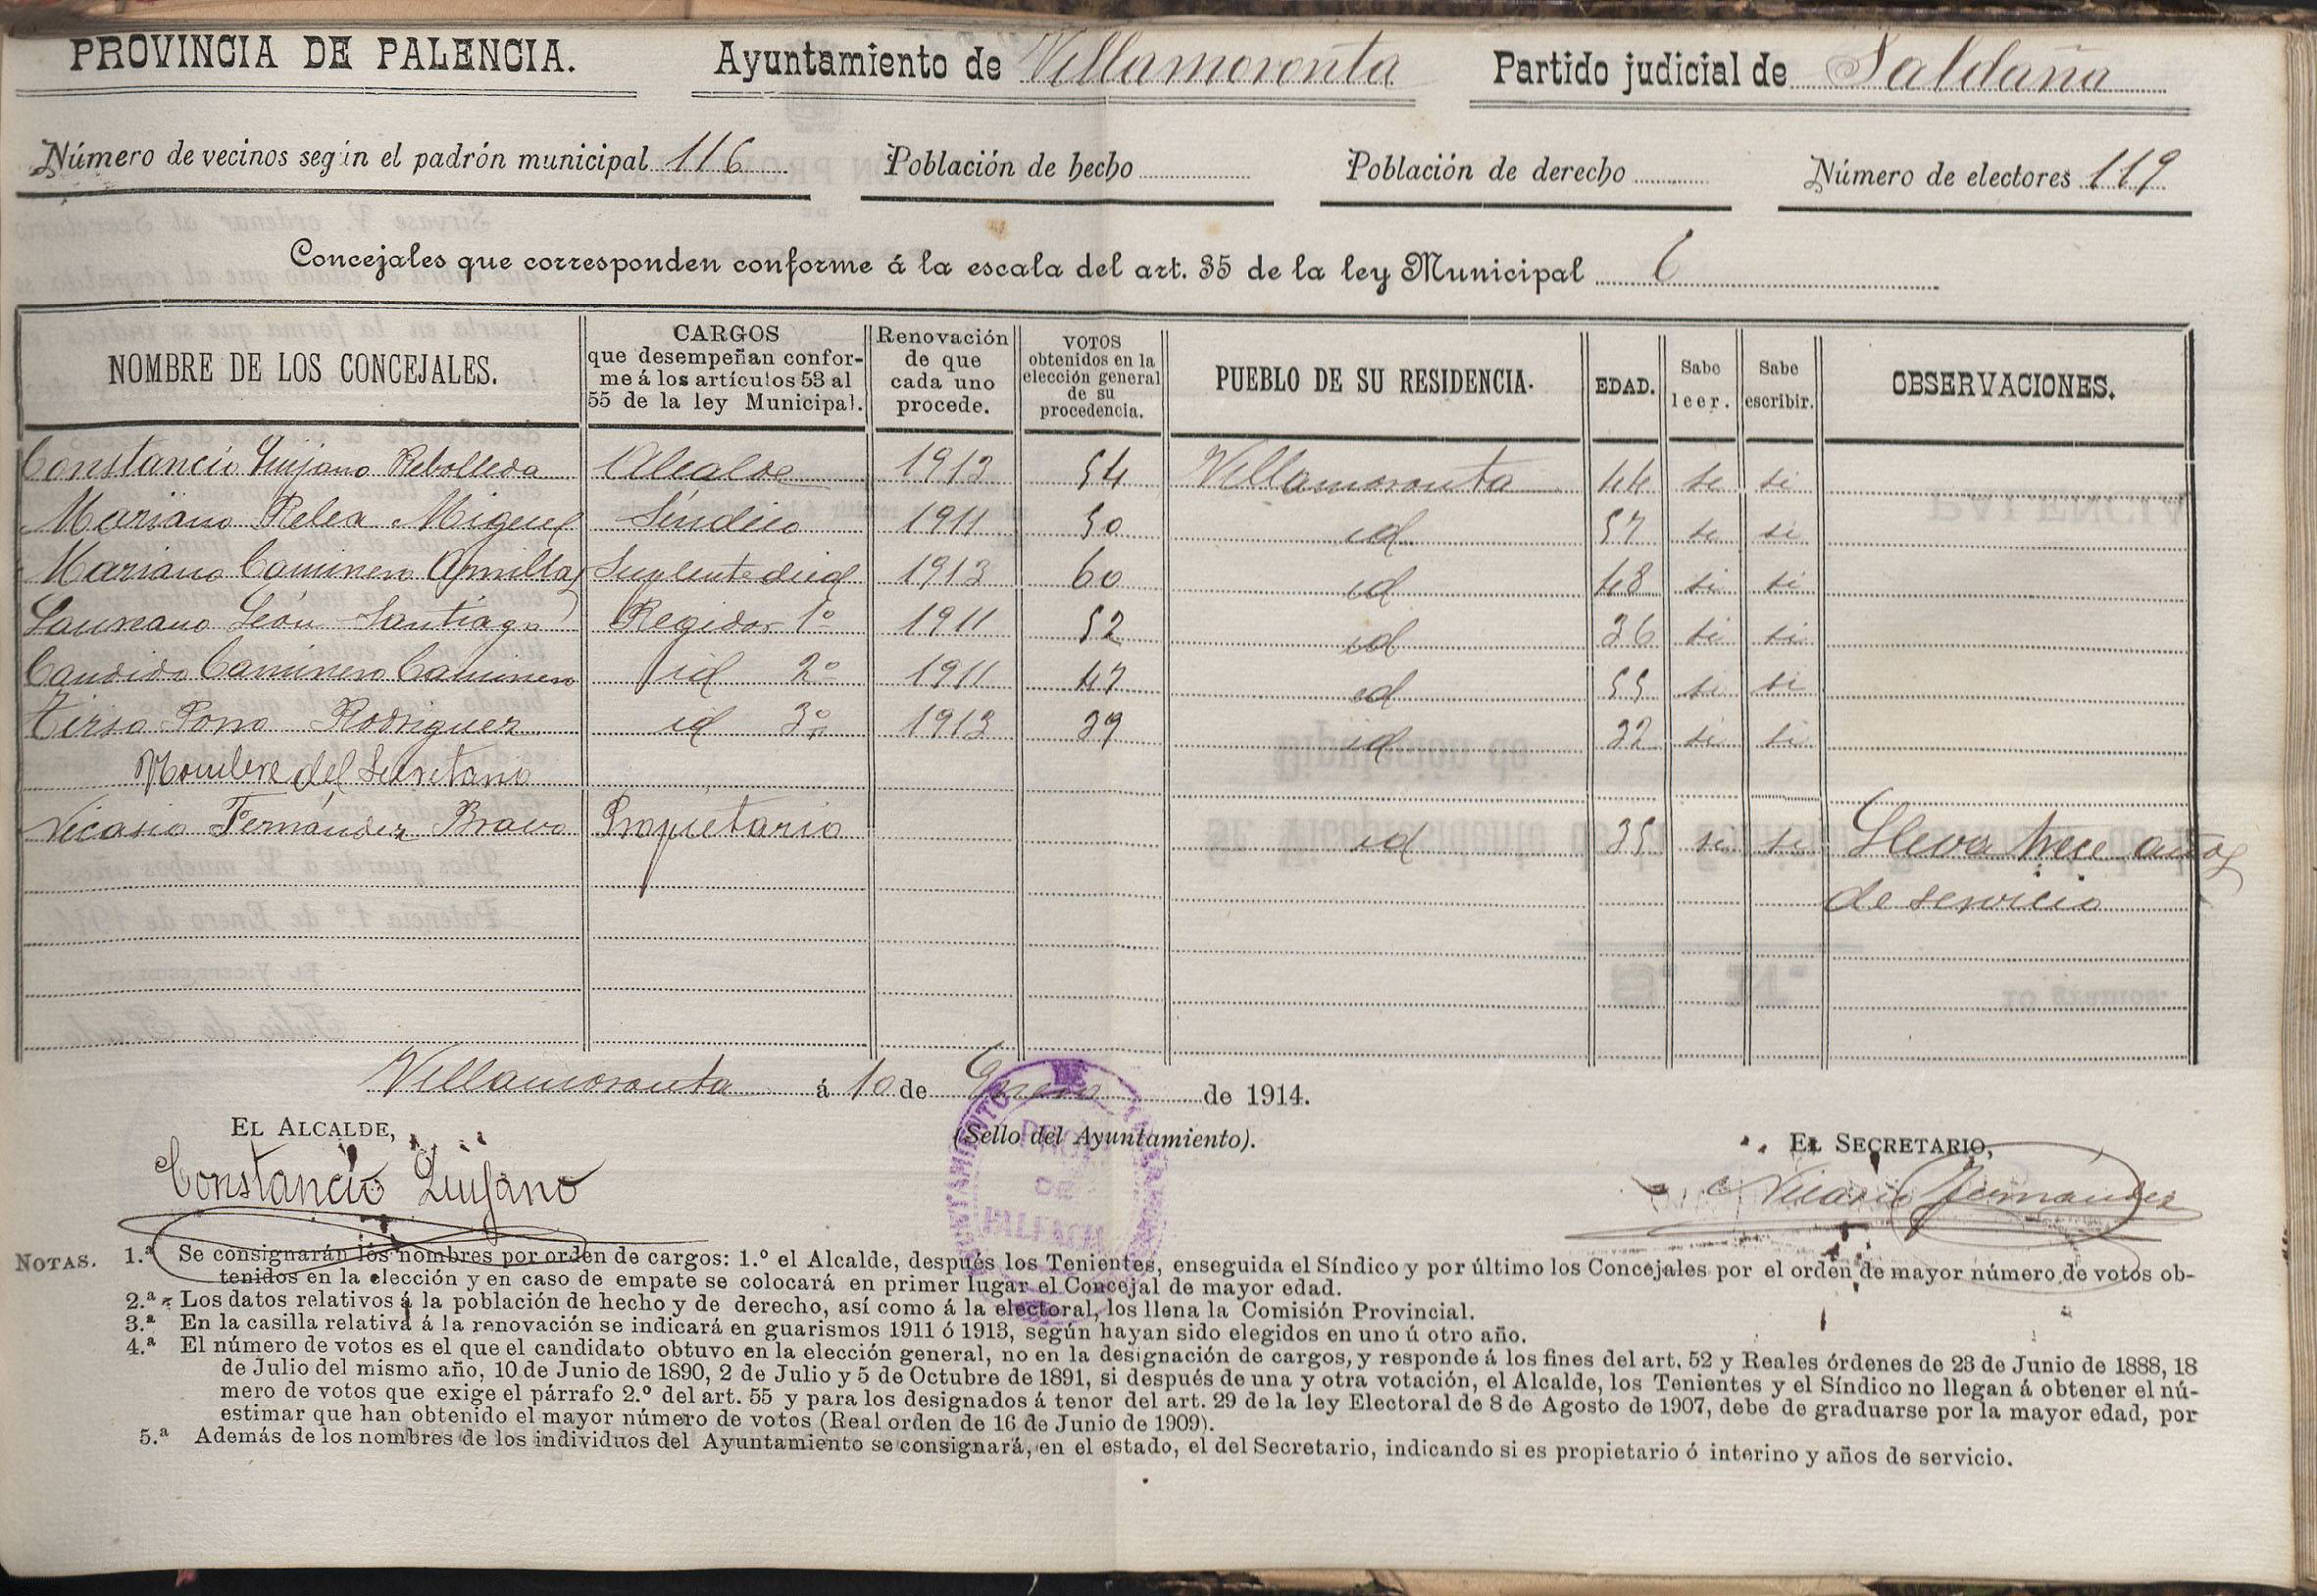 PROVINCIA DE PALENCIA. Ayuntamiento de Villamoronta Partido judicial de Saldaña
Número de vecinos según el padrón municipal 116 Población de hecho Población de derecho Número de electores 119
Concejales que corresponden conforme á la escala del art. 35 de la ley Municipal 6
NOMBRE DE LOS CONCEJALES. CARGOS que desempeñan conforme á los artículos 53 al 55 de la ley Municipal. Renovación de que cada uno procede. VOTOS obtenidos en la elección general de su procedencia. PUEBLO DE SU RESIDENCIA. EDAD. Sabe leer. Sabe escribir. OBSERVACIONES.
Constancio Quijano Rebolleda Alcalde 1913 54 Villamoronta 44 si si
Mariano Relea Miguel Síndico 1911 50 id 57 si si
Mariano Caminero Suplente de id 1913 60 id 48 si si
Laureano León Santiago Regidor 1º 1911 52 id 36 si si
Candido Caminero Caminero id 2º 1911 47 id 55 si si
Tirso Pona Rodriguez id 3º 1913 39 id 32 si si
Nombre del Secretario
Nicasio Fernández Bravo Propietario id 35 si si Lleva trece años
de servicio
Villamoronta á 10 de Enero de 1914.
EL ALCALDE, (Sello del Ayuntamiento). EL SECRETARIO,
Constancio Quijano Nicasio Fernández
AYUNTAMIENTO PROV. DE PALENCIA
NOTAS. 1.ª Se consignarán los nombres por orden de cargos: 1.º el Alcalde, después los Tenientes, enseguida el Síndico y por último los Concejales por el orden de mayor número de votos ob-
tenidos en la elección y en caso de empate se colocará en primer lugar el Concejal de mayor edad.
2.ª Los datos relativos á la población de hecho y de derecho, así como á la electoral, los llena la Comisión Provincial.
3.ª En la casilla relativa á la renovación se indicará en guarismos 1911 ó 1913, según hayan sido elegidos en uno ú otro año.
4.ª El número de votos es el que el candidato obtuvo en la elección general, no en la designación de cargos, y responde á los fines del art. 52 y Reales órdenes de 23 de Junio de 1888, 18
de Julio del mismo año, 10 de Junio de 1890, 2 de Julio y 5 de Octubre de 1891, si después de una y otra votación, el Alcalde, los Tenientes y el Síndico no llegan á obtener el nú-
mero de votos que exige el párrafo 2.º del art. 55 y para los designados á tenor del art. 29 de la ley Electoral de 8 de Agosto de 1907, debe de graduarse por la mayor edad, por
estimar que han obtenido el mayor número de votos (Real orden de 16 de Junio de 1909).
5.ª Además de los nombres de los individuos del Ayuntamiento se consignará, en el estado, el del Secretario, indicando si es propietario ó interino y años de servicio.